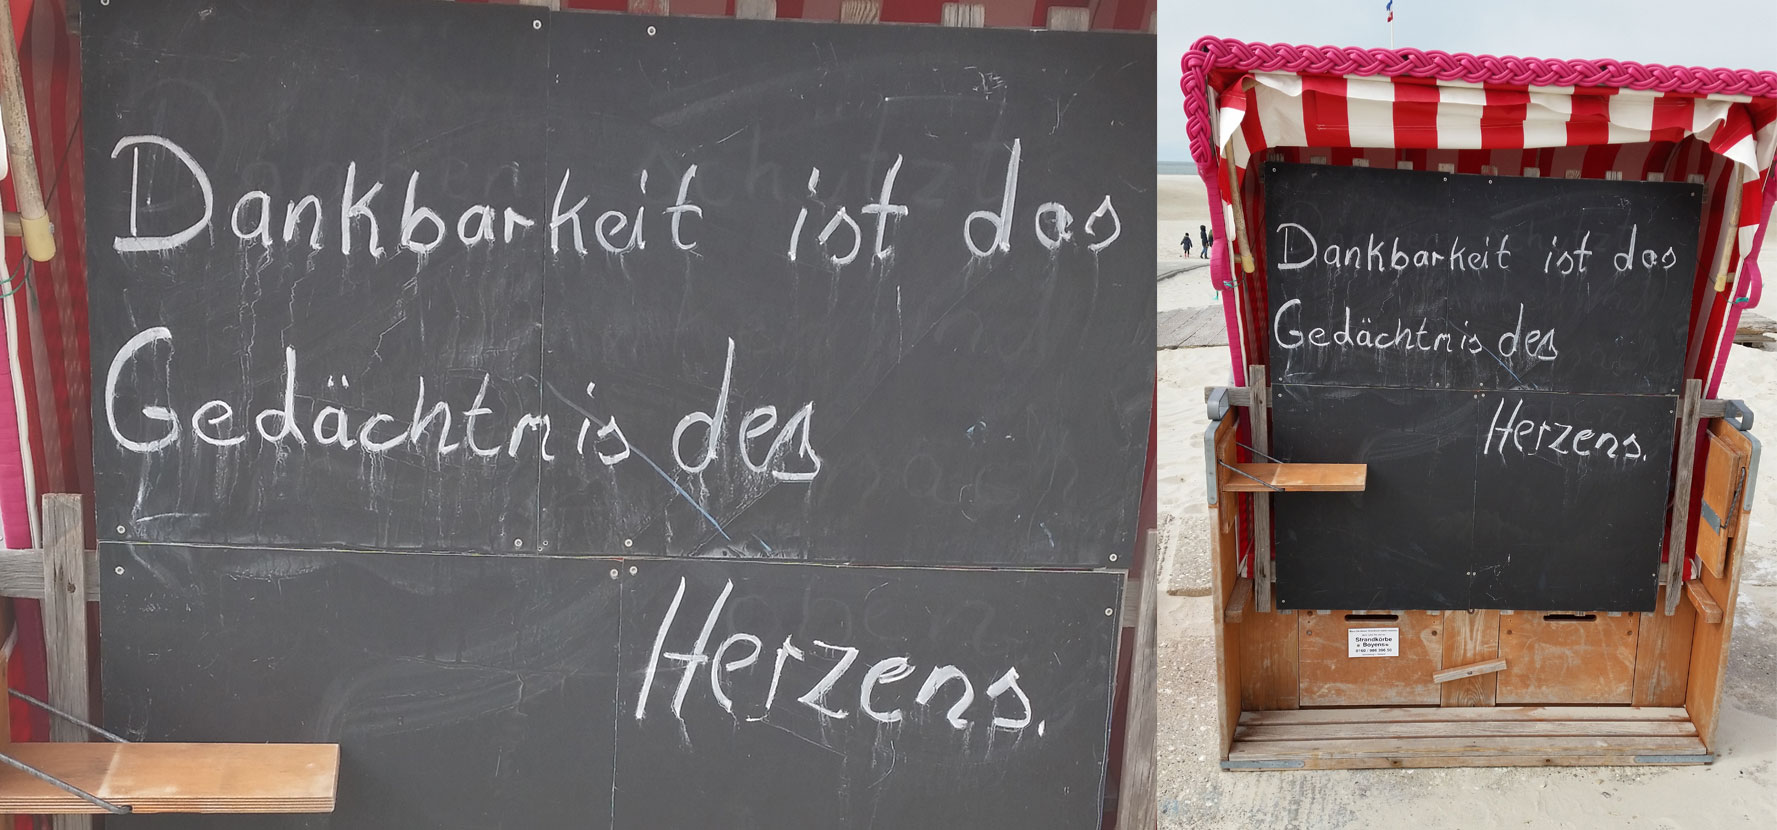 Dankbarkeit ist das
Gedächtnis des
Herzens.
Dankbarkeit ist das
Gedächtnis des
Herzens.
Strandkörbe